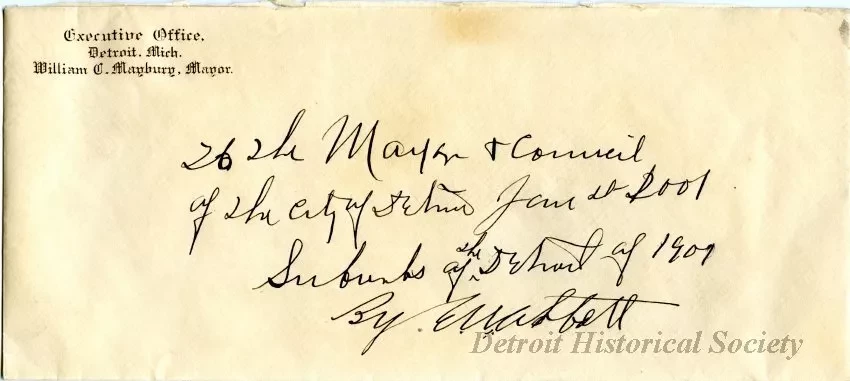 Executive Office,
Detroit, Mich.
William C. Maybury, Mayor.
To the Mayor & Council
of the City of Detroit Jan 1st 2001
Suburbs of the Detroit of 1901
By
Detroit Historical Society